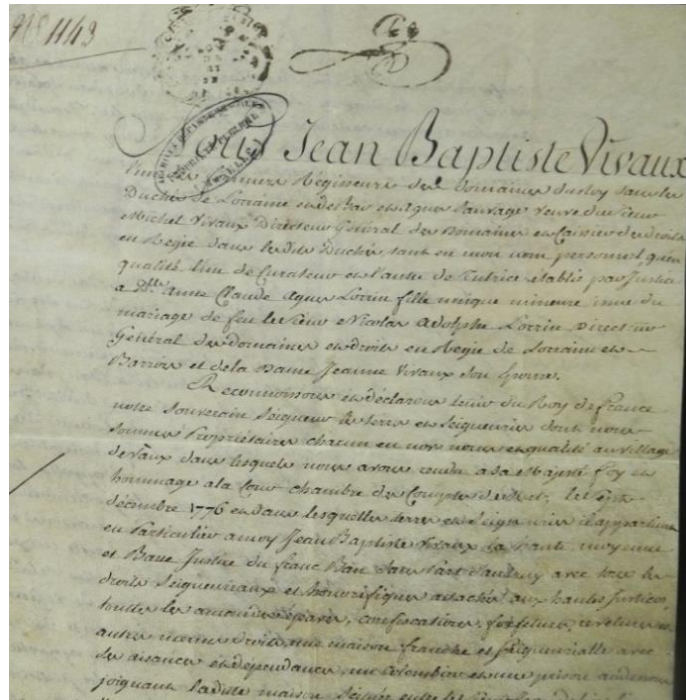 1143
Nous Jean Baptiste Vivaux
Régisseurs des Domaines du Roy dans les
Duchés de Lorraine et de Bar et Agnes Sauvage veuve du sieur
Michel Vivaux Directeur Général des Domaines et Caissier des droits
en Regie dans lesdits Duchés, tant en mon nom personnel qu'en
qualité l'un de Curateur et l'autre de Tutrice etablis par Justice
a Dlle Anne Claude Agnes Lorrin fille unique mineure issue du
mariage de feu le sieur Nicolas Adolphe Lorrin Directeur
Général des Domaines et droits en Regie de Lorraine et
Barrois et de la Dame Jeanne Vivaux son Epouse.
Reconnoissons et déclarons tenir du Roy de france
notre Souverain Seigneur les terres et Seigneuries dont nous
sommes Propriétaires chacun en nos noms et qualité au village
de Vaux dans lesquels nous avons rendu a sa Majesté foy et
hommage a la Cour chambre des Comptes de Metz le
décembre 1776 et dans lesquelles terres et Seigneuries il appartient
en Particulier a moy Jean Baptiste Vivaux la haute, moyenne
et Basse Justice du franc Ban dans avec tous les
droits Seigneuriaux et honorifiques attachés aux hautes Justices,
toutes les amendes, épaves, confiscations, forfetures, revetures et
autres menus droits, une maison franche et seigneurialle avec
ses aisances et dépendances, un Colombier et une prison
joignant ladite maison